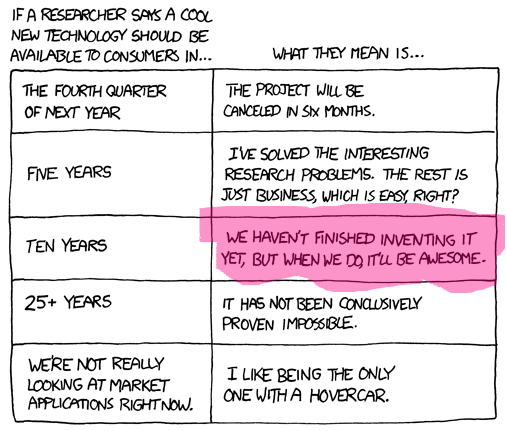 IF A RESEARCHER SAYS A COOL
NEW TECHNOLOGY SHOULD BE
AVAILABLE TO CONSUMERS IN...
WHAT THEY MEAN IS...
THE FOURTH QUARTER
OF NEXT YEAR
THE PROJECT WILL BE
CANCELED IN SIX MONTHS.
FIVE YEARS
I'VE SOLVED THE INTERESTING
RESEARCH PROBLEMS. THE REST IS
JUST BUSINESS, WHICH IS EASY, RIGHT?
TEN YEARS
WE HAVEN'T FINISHED INVENTING IT
YET, BUT WHEN WE DO, IT'LL BE AWESOME.
25+ YEARS
IT HAS NOT BEEN CONCLUSIVELY
PROVEN IMPOSSIBLE.
WE'RE NOT REALLY
LOOKING AT MARKET
APPLICATIONS RIGHT NOW.
I LIKE BEING THE ONLY
ONE WITH A HOVERCAR.